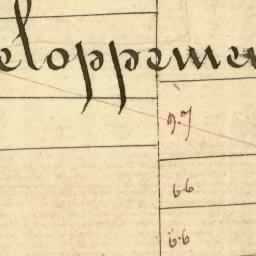 eloppeme
6.6
6.6